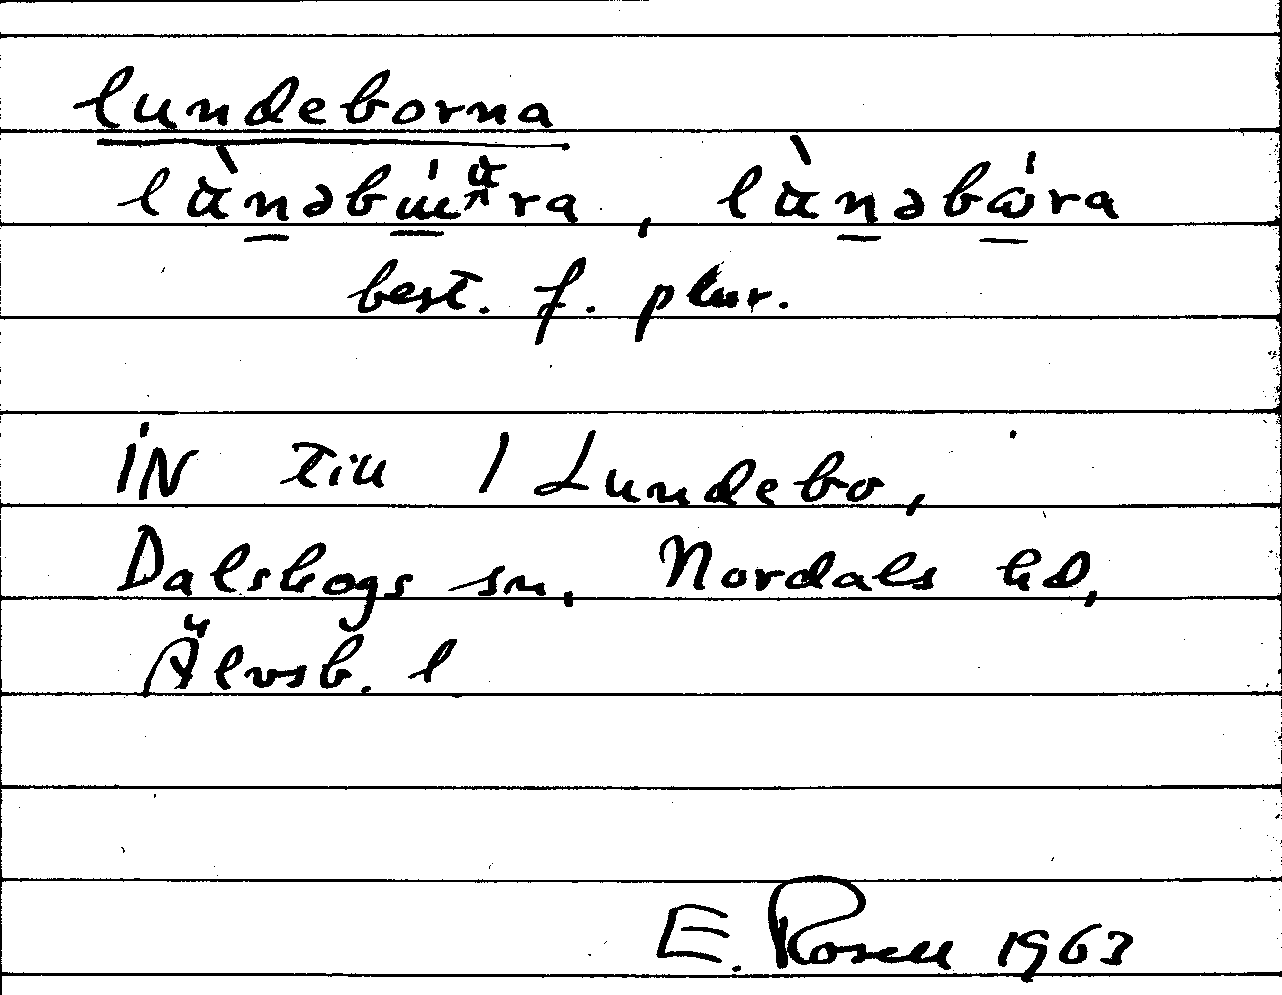 lundeborna
lὰnəbɯ́ᵅra, lὰnəbɷ́ra
best. f. plur.
iN till 1 Lundebo,
Dalskogs sn, Nordals hd,
Älvsb. l
E. Rosell 1963